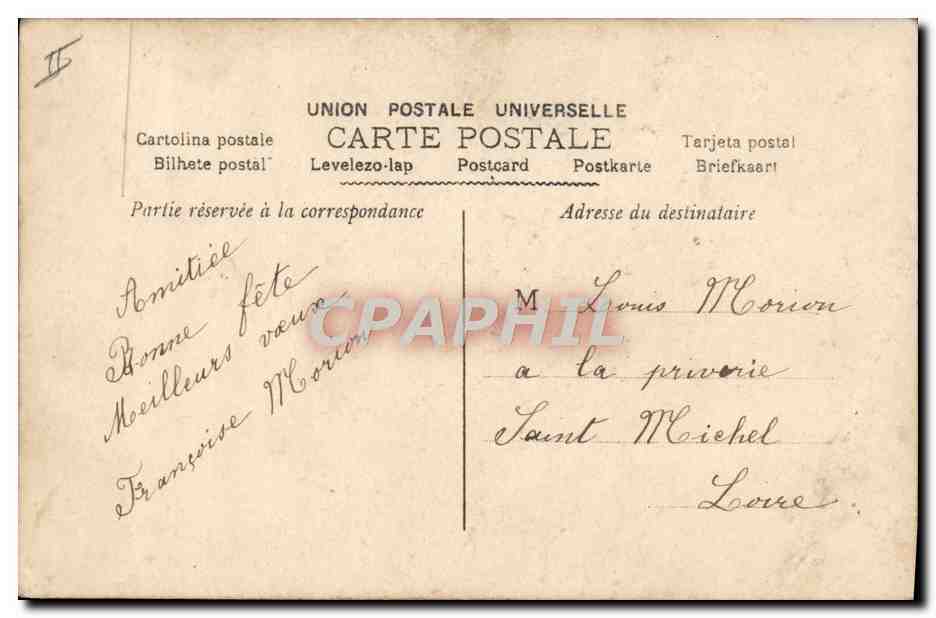 II
UNION POSTALE UNIVERSELLE
CARTE POSTALE
Cartolina postale
Tarjeta postal
Bilhete postal
Levelezo-lap
Postcard
Postkarte
Briefkaart
Partie réservée à la correspondance
Amitiée
Bonne fête
Meilleurs vœux
Françoise Morion
Adresse du destinataire
M Louis Morion
a la priverie
Saint Michel
Loire
CPAPHIL